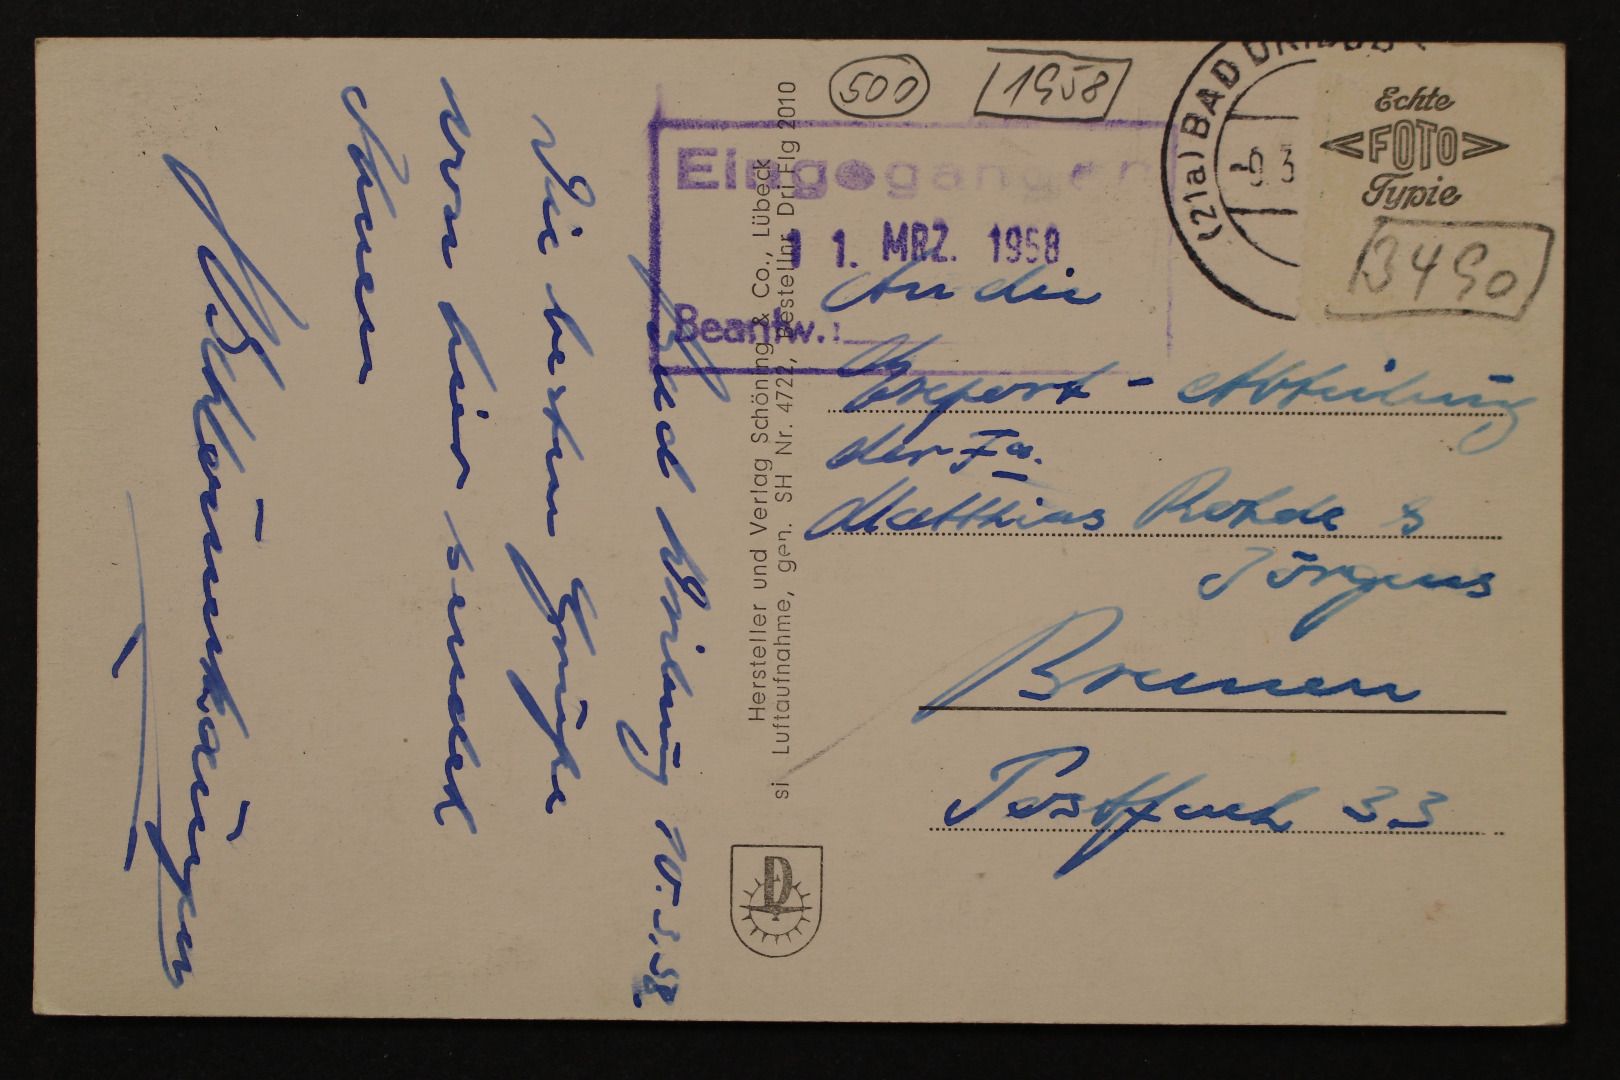 Bad Driburg 10.3.58.
Die besten Grüße
von hier sendet
Ihnen
Hersteller und Verlag Schöning & Co., Lübeck
si Luftaufnahme, gen. SH Nr. 4722, Bestellnr. Dri Flg 2010
500
1958
Eingegangen
11. MRZ. 1958
Beantw.:
(21a) BAD DRIBURG
-9. 3
Echte
<FOTO>
Typie
3490
An die
Export-Abteilung
der Fa.
Matthias Rohde &
Jörgens
Bremen
Postfach 33